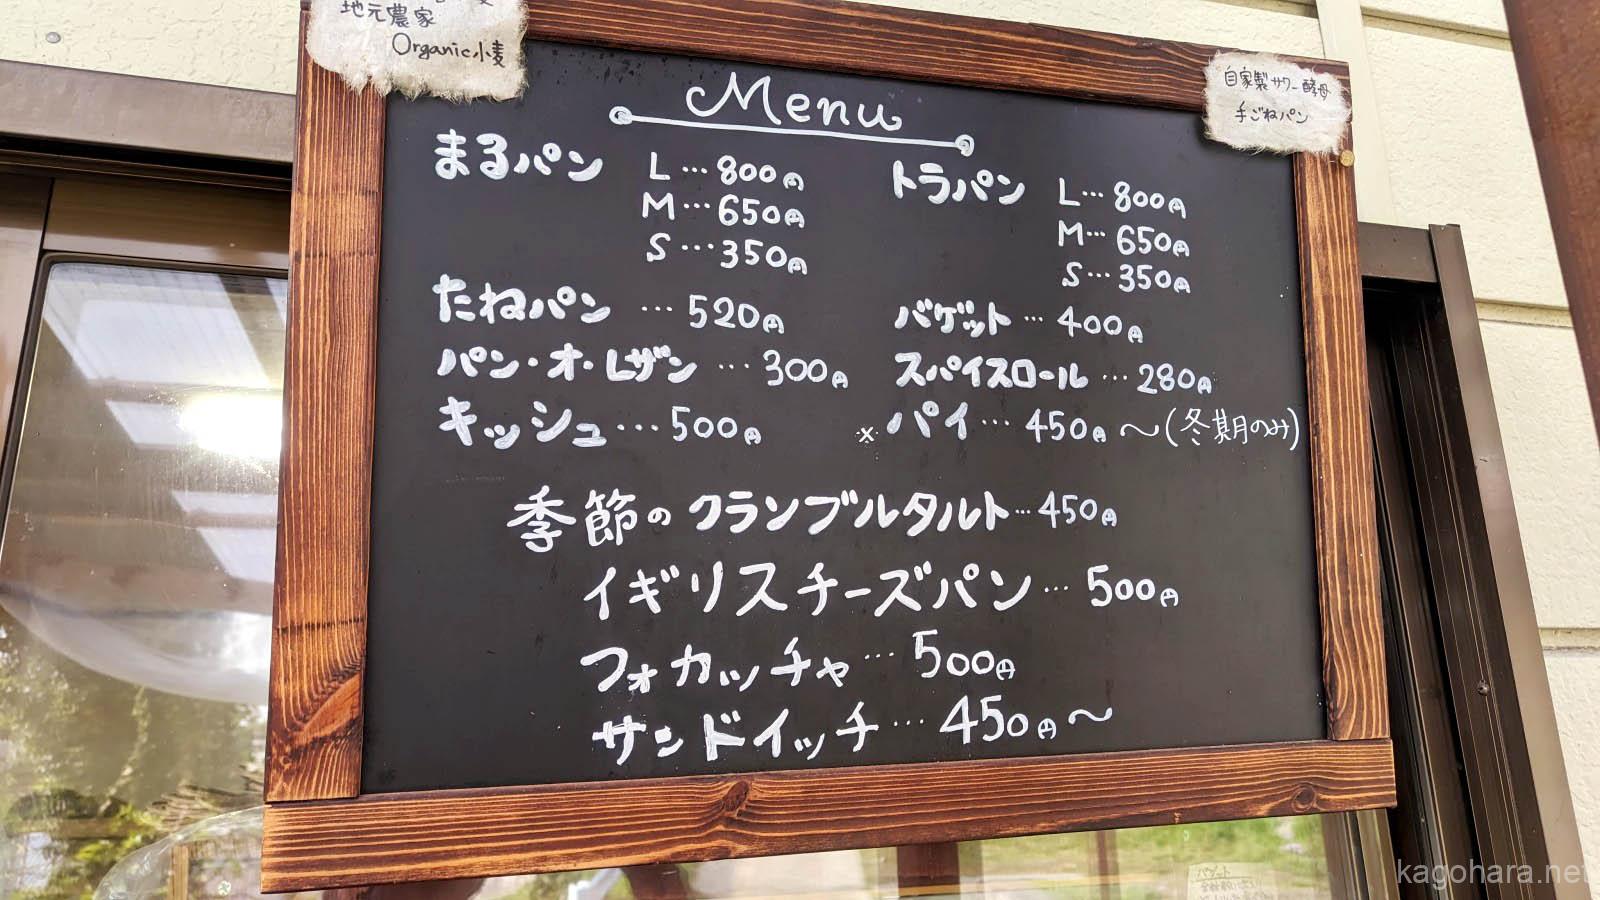 地元農家
Organic小麦
自家製サワー酵母
手ごねパン
Menu
まるパン L…800円
M…650円
S…350円
トラパン L…800円
M…650円
S…350円
たねパン …520円
バゲット …400円
パン・オ・レザン …300円
スパイスロール …280円
キッシュ…500円
※パイ…450円～(冬期のみ)
季節のクランブルタルト…450円
イギリスチーズパン…500円
フォカッチャ…500円
サンドイッチ…450円～
バゲット
kagohara.net